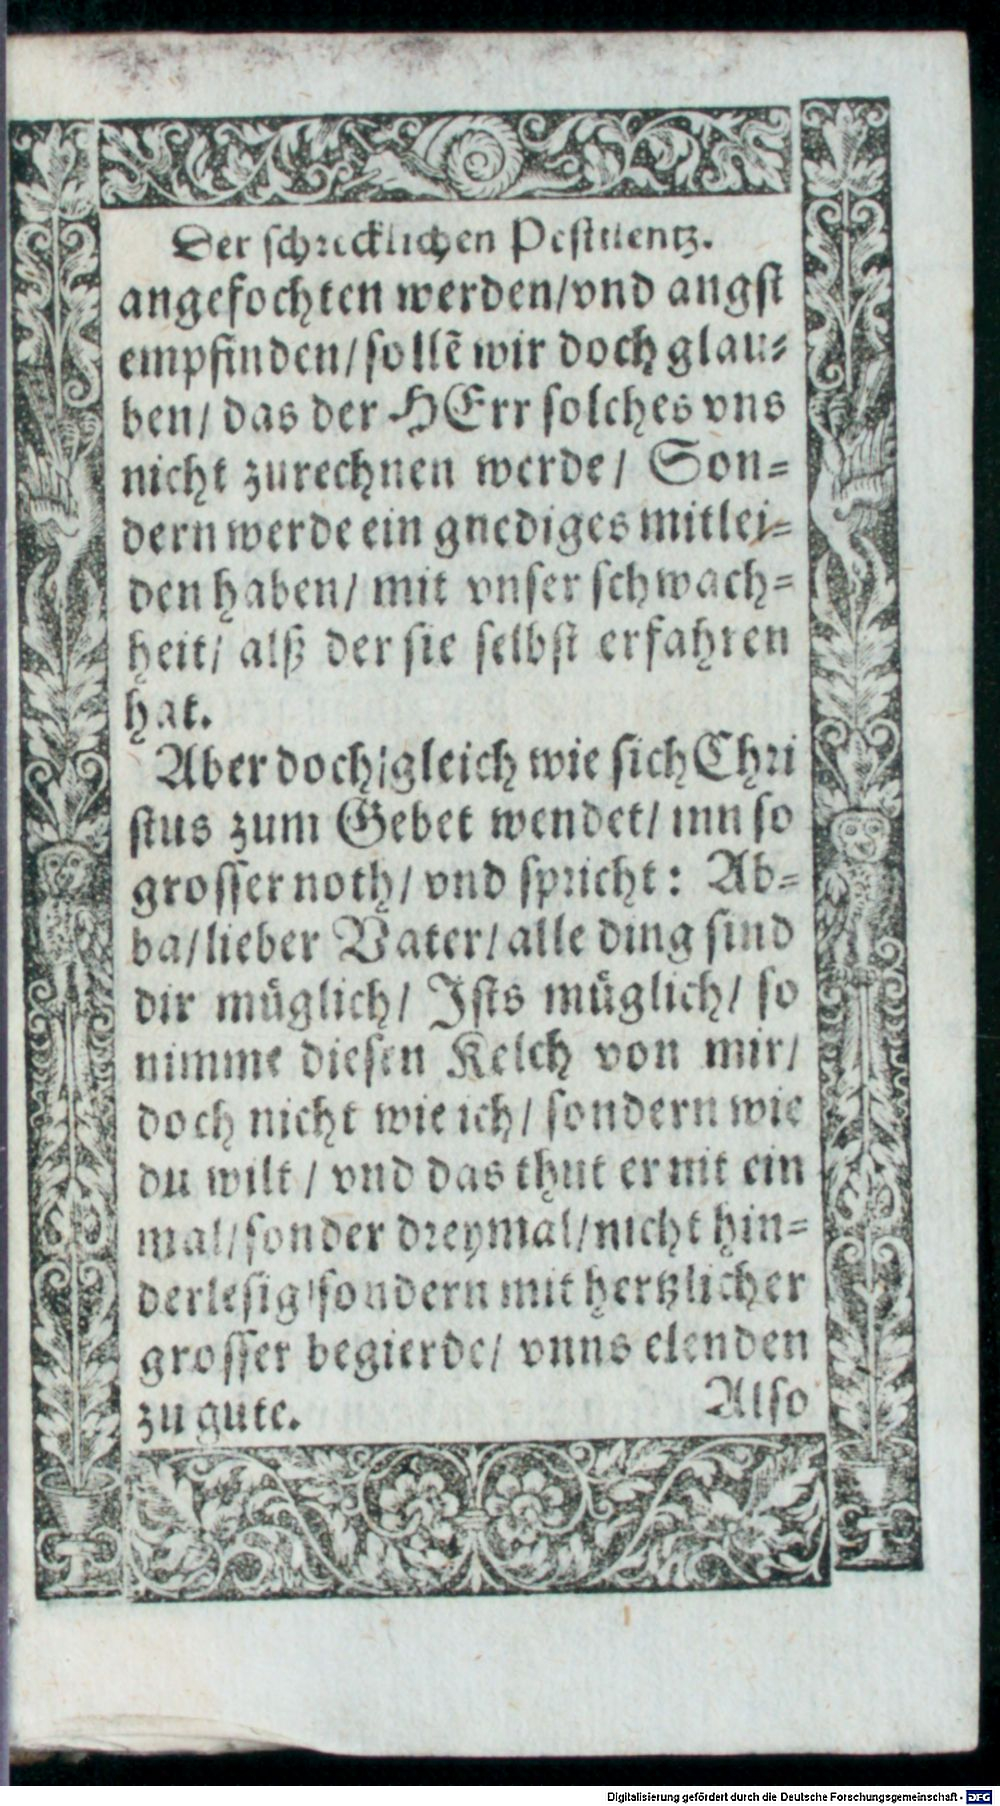 Der schrecklichen Pestilentz.
angefochten werden/vnd angst
empfinden/sollẽ wir doch glau-
ben/ das der HErr solches vns
nicht zurechnen werde/ Son-
dern werde ein gnediges mitlei-
den haben/ mit vnser schwach-
heit/ alß der sie selbst erfahren
hat.
Aber doch/gleich wie sich Chri
stus zum Gebet wendet/ inn so
grosser noth/ vnd spricht: Ab-
ba/lieber Vater/alle ding sind
dir müglich/ Jsts müglich/ so
nimme diesen Kelch von mir/
doch nicht wie ich/ sondern wie
du wilt/ vnd das thut er nit ein
mal/sonder dreymal/nicht hin-
derlesig/sondern mit hertzlicher
grosser begierde/ vnns elenden
zu gute.
Also
Digitalisierung gefördert durch die Deutsche Forschungsgemeinschaft - DFG